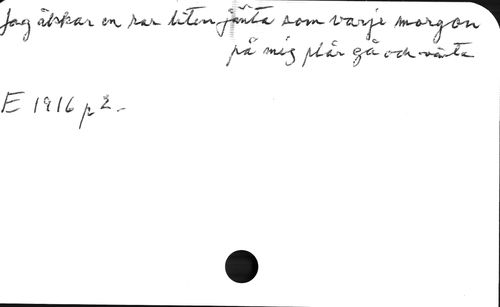 Jag älskar en rar liten jänta som varje morgon
på mig plär gå och vänta
E 1916 p 2.